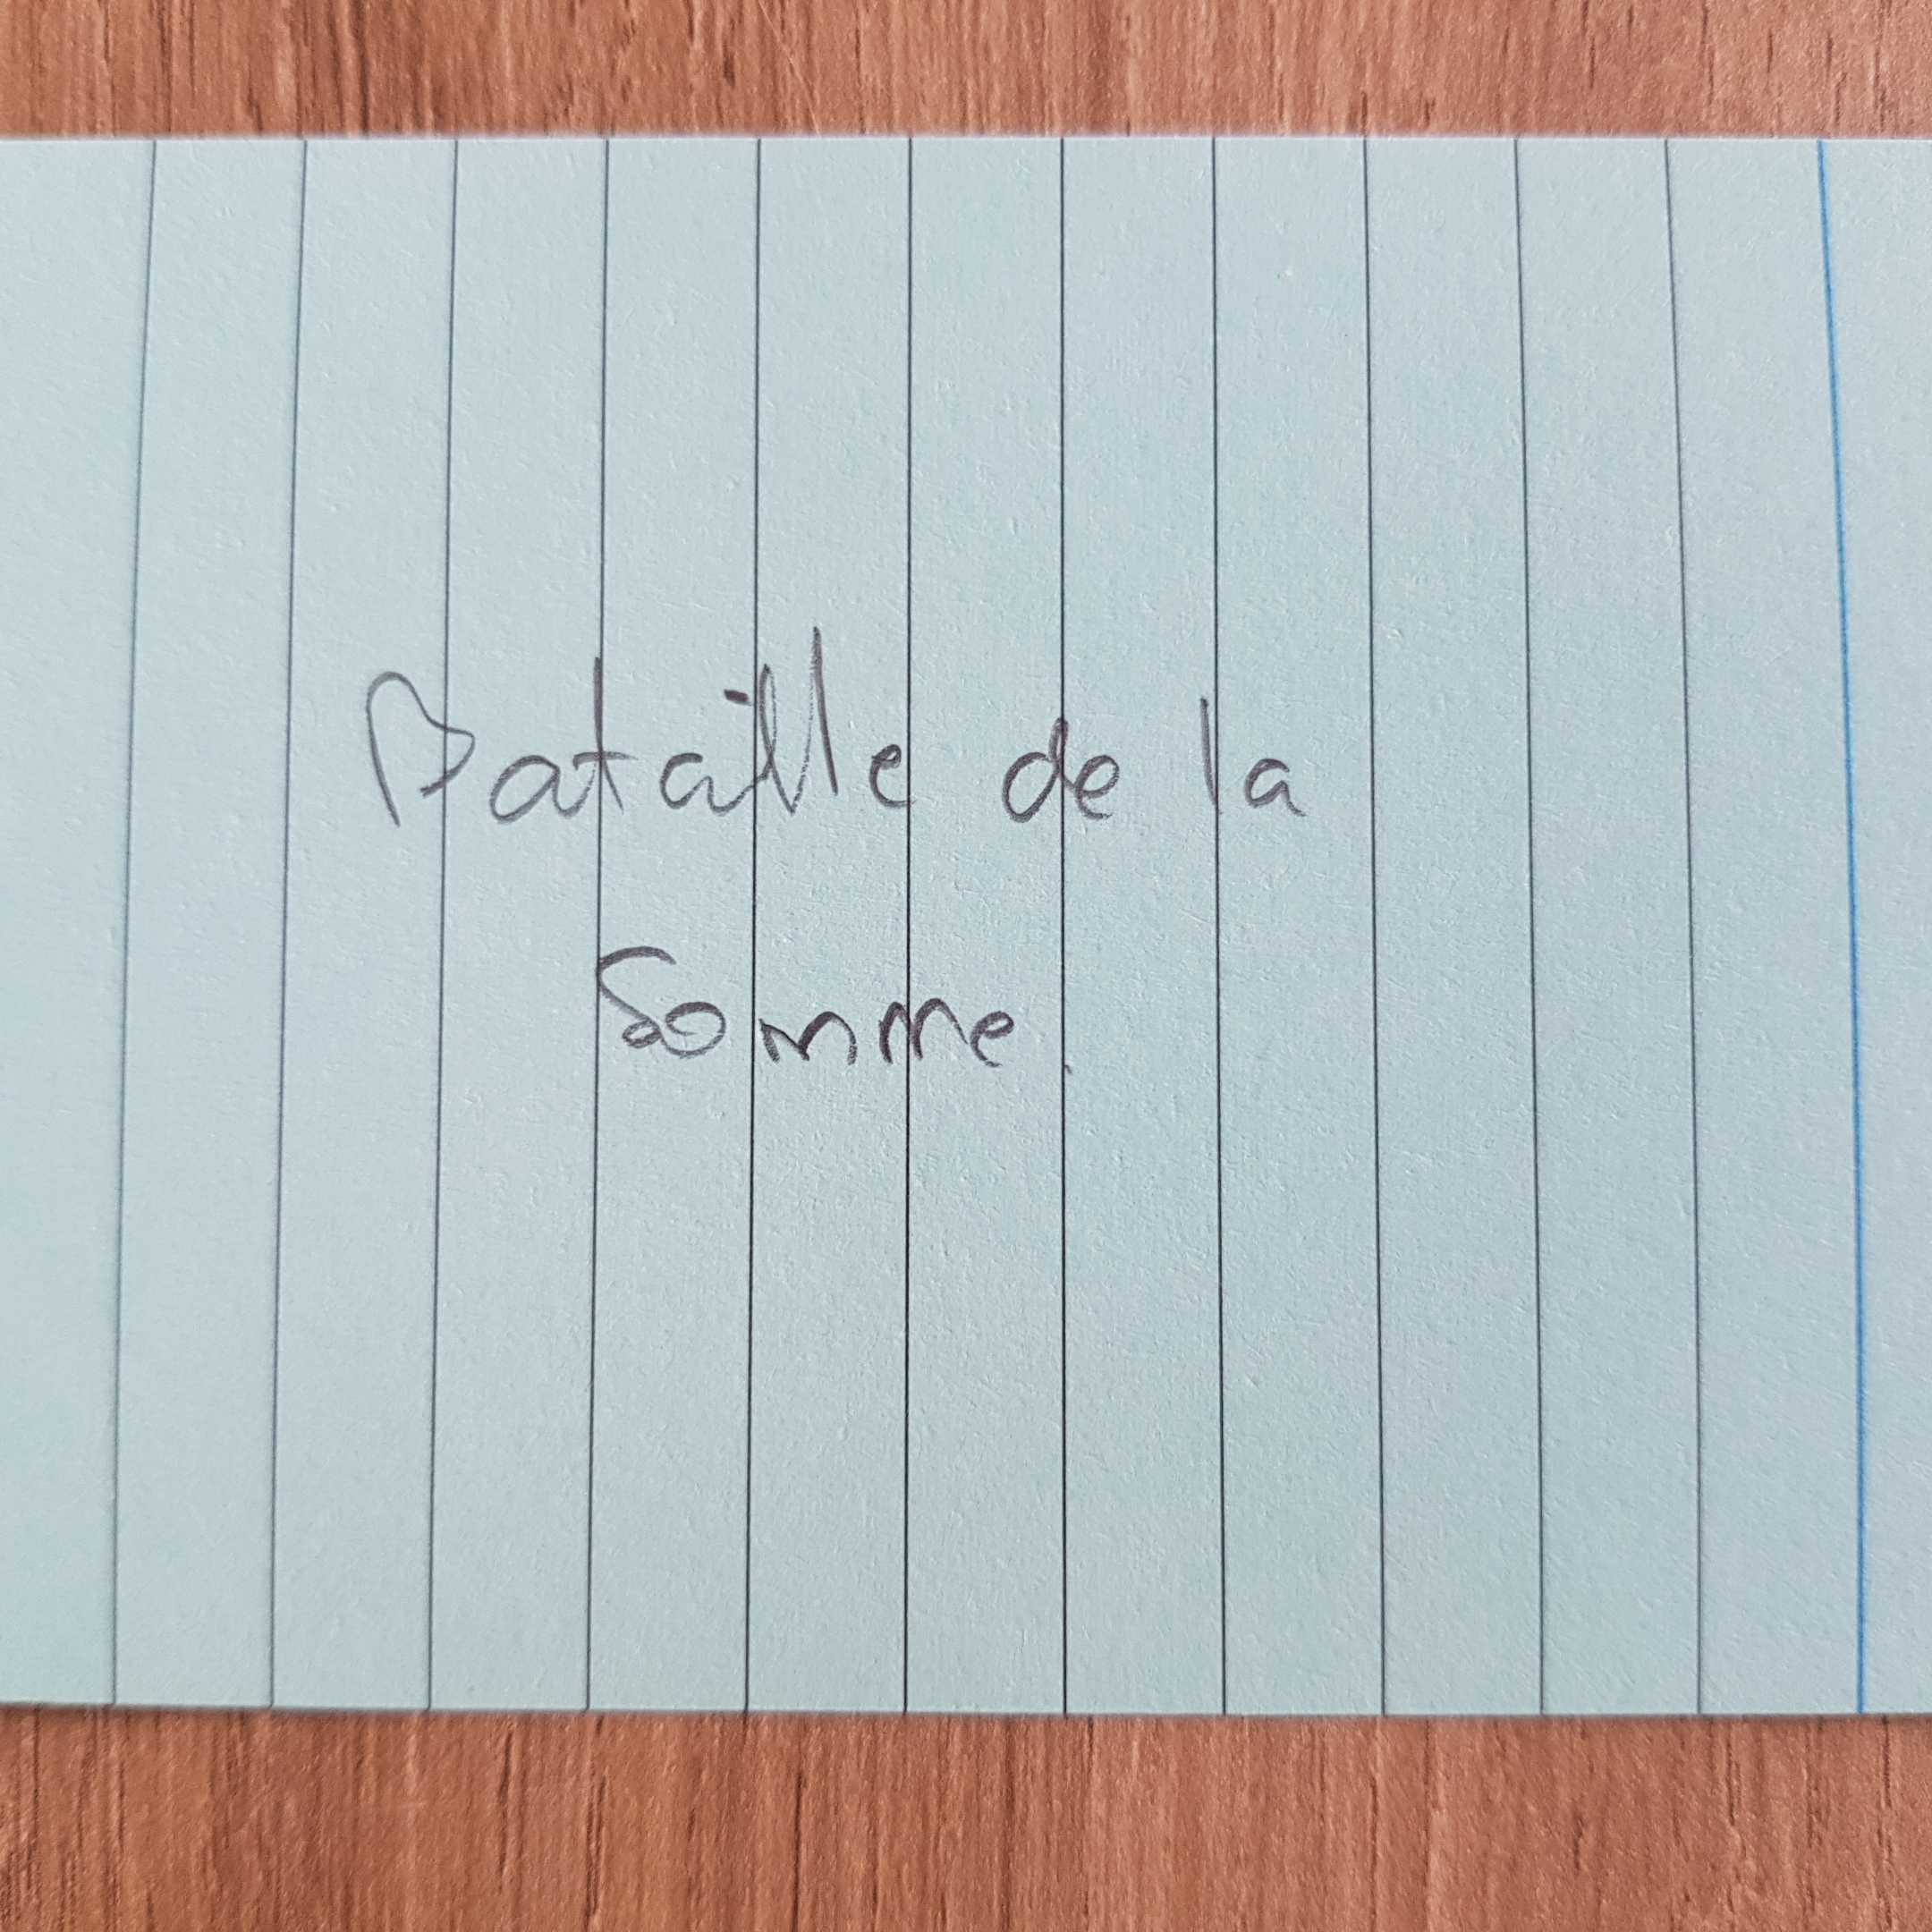 Bataille de la
Somme.